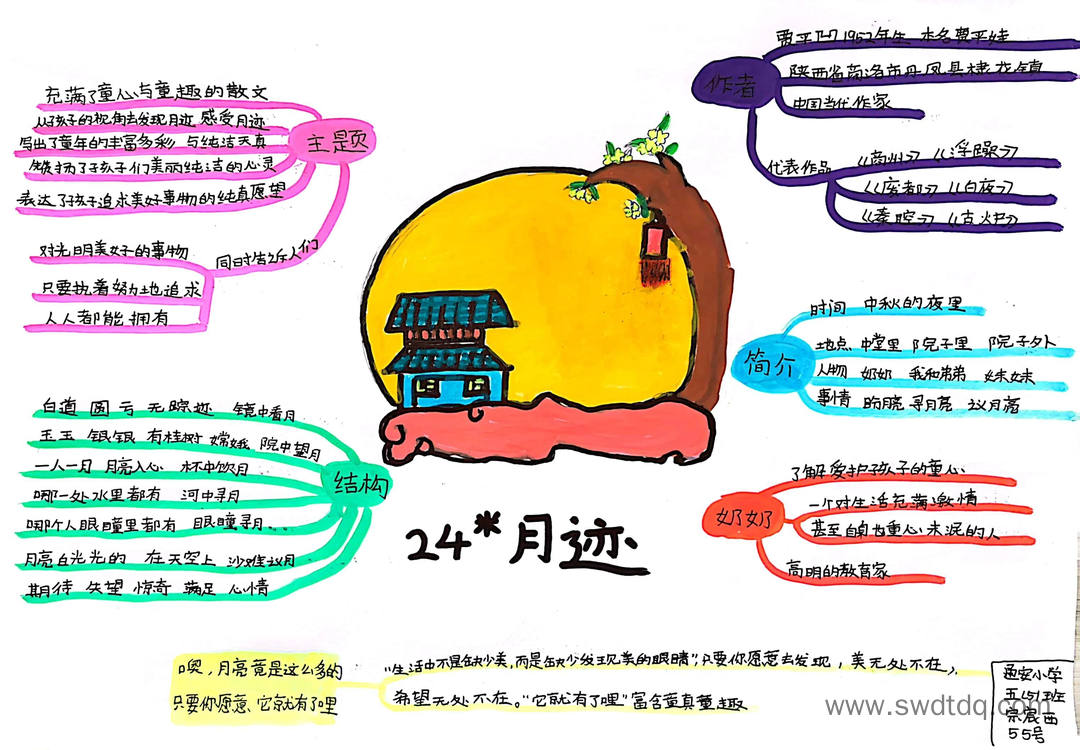 24*月迹
作者
贾平凹 1952年生 本名贾平娃
陕西省商洛市丹凤县棣花镇
中国当代作家
代表作品
《商州》 《浮躁》
《废都》 《白夜》
《秦腔》 《古炉》
简介
时间 中秋的夜里
地点 中堂里 院子里 院子外
人物 奶奶 我和弟弟 妹妹
事情 盼月亮 寻月亮 议月亮
奶奶
了解爱护孩子的童心
一个对生活充满了激情
甚至自身也童心未泯的人
高明的教育家
主题
充满了童心与童趣的散文
从孩子的视角去发现月迹 感受月迹
写出了童年的丰富多彩 与纯洁天真
赞扬了孩子们美丽纯洁的心灵
表达了孩子追求美好事物的纯真愿望
同时告诉人们
对光明美好的事物
只要执着努力地追求
人人都能拥有
结构
白道 圆 亏 无踪迹 镜中看月
玉玉 银银 有桂树 嫦娥 院中望月
一人一月 月亮入心 杯中饮月
哪一处水里都有 河中寻月
哪个人眼瞳里都有 眼瞳寻月...
月亮白光光的 在天空上 沙滩议月
期待 失望 惊奇 满足 心情
噢，月亮竟是这么多的
只要你愿意、它就有了哩
"生活中不是缺少美,而是缺少发现美的眼睛"，只要你愿意去发现，美无处不在，
希望无处不在。"它就有了哩"富含童真童趣
通安小学
五(5)班
宗宸西
55号
www.swdtdq.com